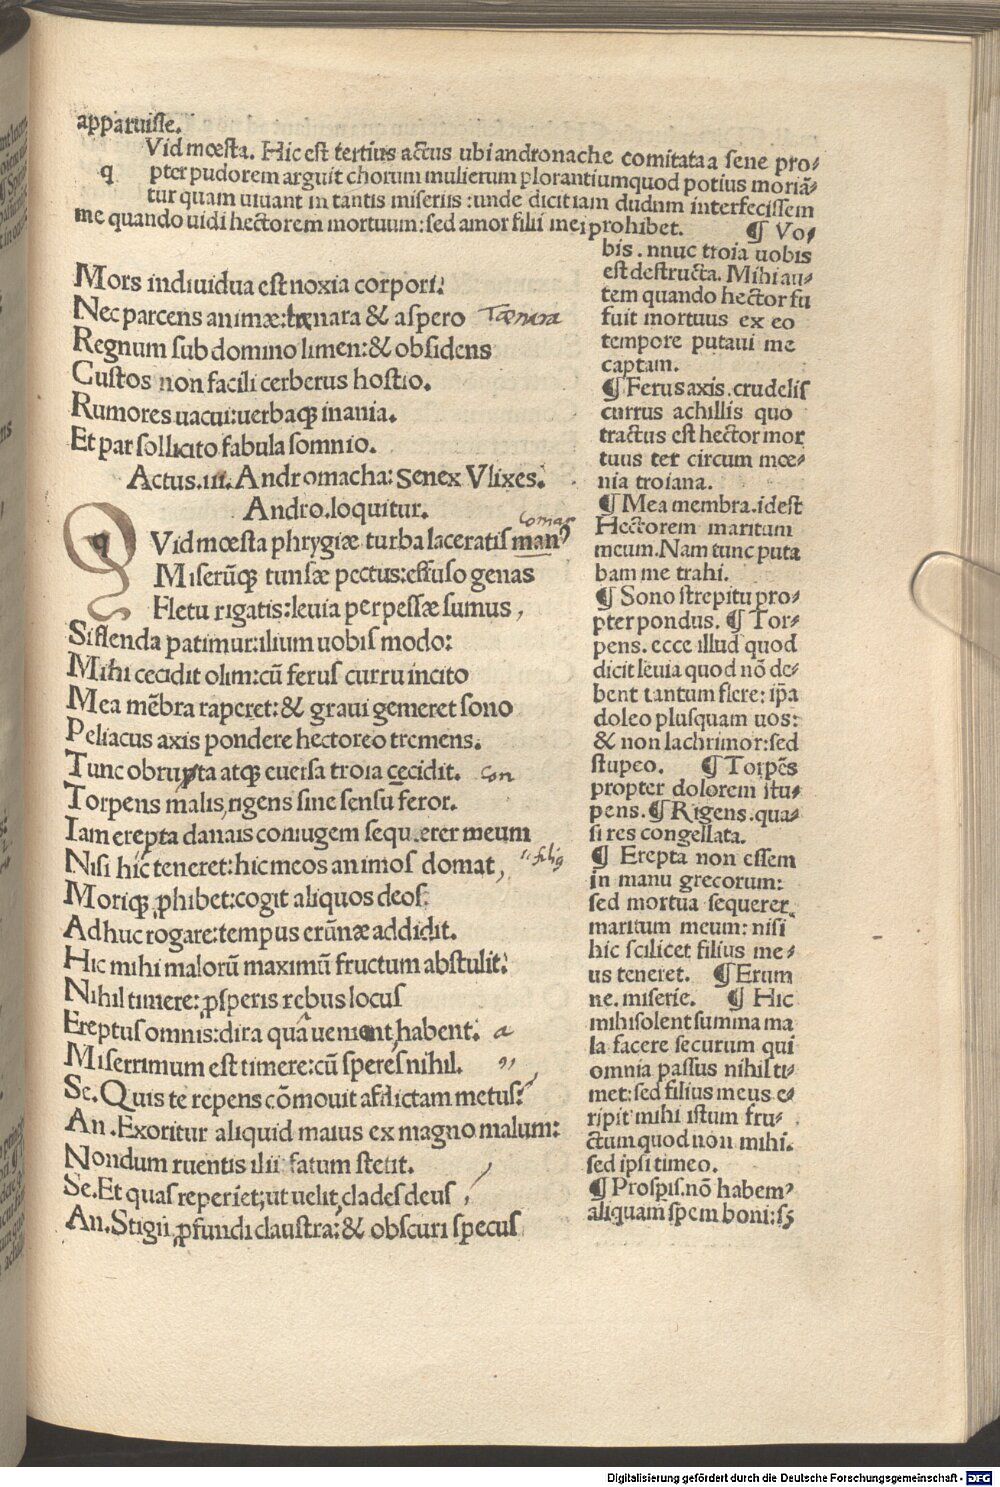 apparuisse.
Vid mœsta. Hic est tertius actus ubi andronache comitata a sene pro-
q pter pudorem arguit chorum mulierum plorantium quod potius moriã-
tur quam uiuant in tantis miseriis: unde dicit iam dudum interfecissem
me quando uidi hectorem mortuum: sed amor filii mei prohibet. ¶ Vo-
Mors indiuidua est noxia corpori:
Nec parcens animæ: tænara & aspero Tænara
Regnum sub domino limen: & obsidens
Custos non facili cerberus hostio.
Rumores uacui: uerbaqꝫ inania.
Et par sollicito fabula somnio.
Actus .iii. Andromacha: Senex Vlixes.
Andro. loquitur.
q Vid mœsta phrygiæ turba laceratis manꝰ comas
Miserũqꝫ tunsæ pectus: effuso genas
Fletu rigatis: leuia perpessæ sumus,
Si flenda patimur: ilium uobis modo:
Mihi cecidit olim: cũ ferus curru incito
Mea mẽbra raperet: & graui gemeret sono
Peliacus axis pondere hectoreo tremens.
Tunc obrupta atqꝫ euersa troia cecidit. con
Torpens malis, rigens sine sensu feror.
Iam erepta danais coniugem sequerer meum
Nisi hic teneret: hic meos animos domat, s. filiꝰ
Moriqꝫ ꝓhibet: cogit aliquos deos.
Adhuc rogare: tempus erũnæ addidit.
Hic mihi malorũ maximũ fructum abstulit:
Nihil timere: ꝓsperis rebus locus
Ereptus omnis: dira qua ueniont, habent. a
Miserrimum est timere: cũ speres nihil.
Se. Quis te repens cõmouit afdictam metus?
An. Exoritur aliquid maius ex magno malum:
Nondum ruentis ilii fatum stetit.
Se. Et quas reperiet, ut uelit, clades deus,
An. Stigii, ꝓfundi claustra: & obscuri specus
bis. nnuc troia uobis
est destructa. Mihi au-
tem quando hector fu
fuit mortuus ex eo
tempore putaui me
captam.
¶ Ferus axis. crudelis
currus achillis quo
tractus est hector mor
tuus ter circum mœ-
nia troiana.
¶ Mea membra. idest
Hectorem maritum
meum. Nam tunc puta
bam me trahi.
¶ Sono strepitu pro-
pter pondus. ¶ Tor-
pens. ecce illud quod
dicit leuia quod nõ de-
bent tantum flere: ip̃a
doleo plusquam uos:
& non lachrimor: sed
stupeo. ¶ Torpẽs
propter dolorem stu-
pens. ¶ Rigens. qua-
si res congellata.
¶ Erepta non essem
in manu grecorum:
sed mortua sequerer
maritum meum: nisi
hic scilicet filius me-
us teneret. ¶ Erum
ne. miserie. ¶ Hic
mihi solent summa ma
la facere securum qui
omnia passus nihil ti-
met: sed filius meus e-
ripit mihi istum fru-
ctum quod non mihi.
sed ipsi timeo.
¶ Prosꝑis. nõ habemꝰ
aliquam spem boni: sꝫ
Digitalisierung gefördert durch die Deutsche Forschungsgemeinschaft - DFG